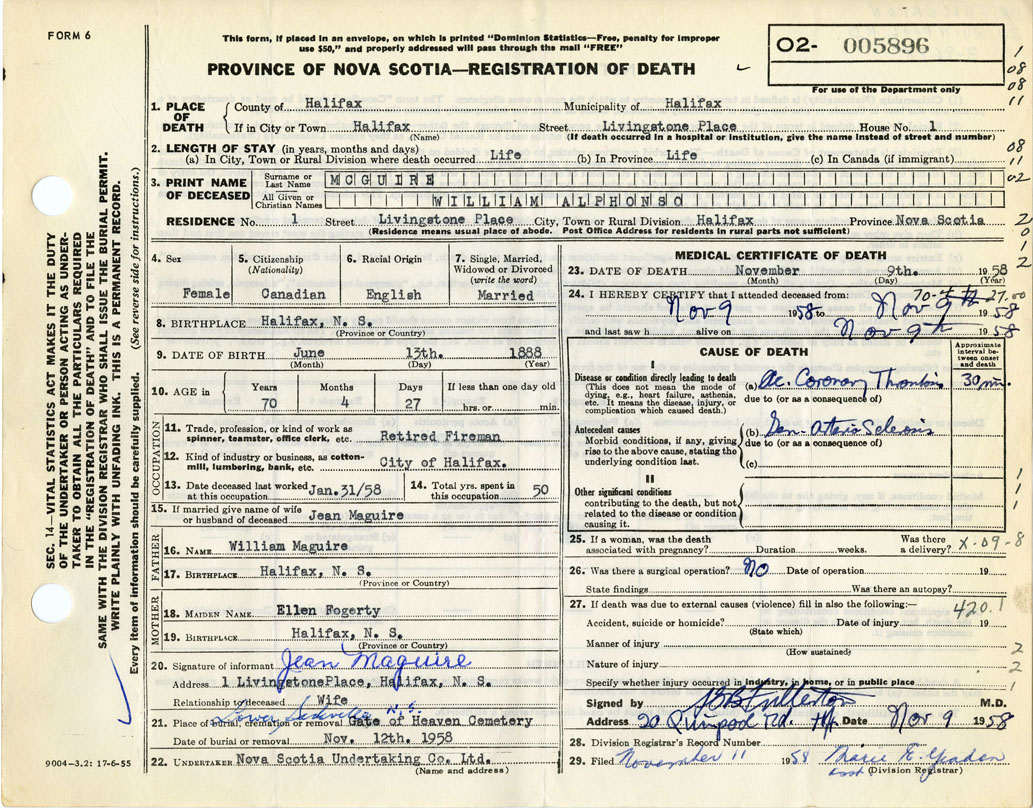 FORM 6
This form, if placed in an envelope, on which is printed “Dominion Statistics—Free, penalty for improper
use $50,” and properly addressed will pass through the mail “FREE”
PROVINCE OF NOVA SCOTIA—REGISTRATION OF DEATH
02- 005896
For use of the Department only
SEC. 14—VITAL STATISTICS ACT MAKES IT THE DUTY
OF THE UNDERTAKER OR PERSON ACTING AS UNDER-
TAKER TO OBTAIN ALL THE PARTICULARS REQUIRED
IN THE “REGISTRATION OF DEATH” AND TO FILE THE
SAME WITH THE DIVISION REGISTRAR WHO SHALL ISSUE THE BURIAL PERMIT.
WRITE PLAINLY WITH UNFADING INK. THIS IS A PERMANENT RECORD.
Every item of information should be carefully supplied. (See reverse side for instructions.)
1. PLACE OF DEATH County of Halifax Municipality of Halifax
If in City or Town Halifax Street Livingstone Place House No. 1
(Name) (If death occurred in a hospital or institution, give the name instead of street and number)
2. LENGTH OF STAY (in years, months and days)
(a) In City, Town or Rural Division where death occurred Life (b) In Province Life (c) In Canada (if immigrant)
3. PRINT NAME OF DECEASED Surname or Last Name MCGUIRE
All Given or Christian Names WILLIAM ALPHONSO
RESIDENCE No. 1 Street Livingstone Place City, Town or Rural Division Halifax Province Nova Scotia
(Residence means usual place of abode. Post Office Address for residents in rural parts not sufficient)
1
08
08
11
08
11
02
2
0
1
2
4. Sex Female
5. Citizenship (Nationality) Canadian
6. Racial Origin English
7. Single, Married, Widowed or Divorced (write the word) Married
8. BIRTHPLACE Halifax, N. S.
(Province or Country)
9. DATE OF BIRTH June 13th. 1888
(Month) (Day) (Year)
10. AGE in Years 70 Months 4 Days 27 If less than one day old hrs. or min.
OCCUPATION
11. Trade, profession, or kind of work as spinner, teamster, office clerk, etc. Retired Fireman
12. Kind of industry or business, as cotton-mill, lumbering, bank, etc. City of Halifax.
13. Date deceased last worked at this occupation Jan.31/58
14. Total yrs. spent in this occupation 50
15. If married give name of wife or husband of deceased Jean Maguire
FATHER
16. NAME William Maguire
17. BIRTHPLACE Halifax, N. S.
(Province or Country)
MOTHER
18. MAIDEN NAME Ellen Fogerty
19. BIRTHPLACE Halifax, N. S.
(Province or Country)
20. Signature of informant Jean Maguire
Address 1 LivingstonePlace, Halifax, N. S.
Relationship to deceased Wife
Lower Sackville N.S.
21. Place of burial, cremation or removal Gate of Heaven Cemetery
Date of burial or removal Nov. 12th. 1958
22. UNDERTAKER Nova Scotia Undertaking Co. Ltd.
(Name and address)
9004-3.2: 17-6-55
MEDICAL CERTIFICATE OF DEATH
23. DATE OF DEATH November 9th. 1958
(Month) (Day) (Year)
24. I HEREBY CERTIFY that I attended deceased from:
Nov 9 1958 to Nov 9 1958
and last saw h alive on Nov 9th 1958
CAUSE OF DEATH
Approximate interval between onset and death
I
Disease or condition directly leading to death
(This does not mean the mode of dying, e.g., heart failure, asthenia, etc. It means the disease, injury, or complication which caused death.)
(a) Ac. Coronary 30 min.
due to (or as a consequence of)
Antecedent causes
Morbid conditions, if any, giving rise to the above cause, stating the underlying condition last.
(b) Gen.
due to (or as a consequence of)
(c)
II
Other significant conditions
contributing to the death, but not related to the disease or condition causing it.
1
1
1
25. If a woman, was the death associated with pregnancy? Duration weeks. Was there a delivery? X-09-8
26. Was there a surgical operation? NO Date of operation 19
State findings Was there an autopsy?
27. If death was due to external causes (violence) fill in also the following:— 420.1
Accident, suicide or homicide? Date of injury 19
(State which)
Manner of injury
(How sustained)
Nature of injury
Specify whether injury occurred in industry, in home, or in public place
2
2
1
Signed by Fullerton M.D.
Address 20 Quinpool Rd. Hfx Date Nov 9 1958
28. Division Registrar's Record Number
29. Filed November 11 1958 Marie E.
asst (Division Registrar)